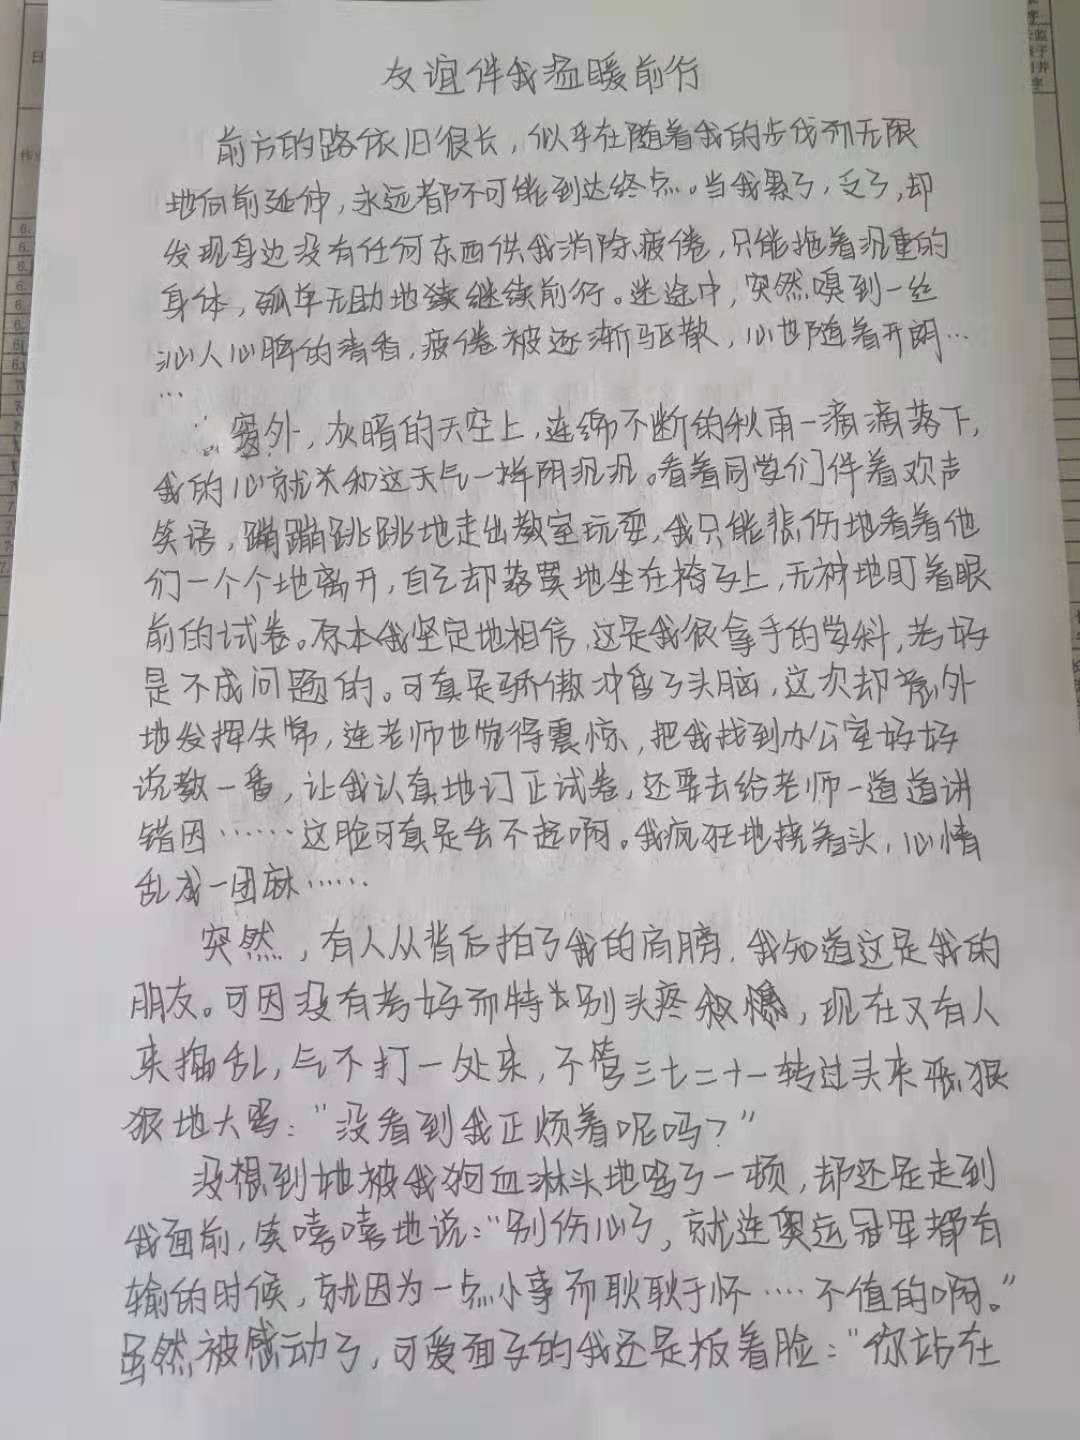 友谊伴我温暖前行
前方的路依旧很长，似乎在随着我的步伐而无限
地向前延伸，永远都不可能到达终点。当我累了，乏了，却
发现身边没有任何东西供我消除疲倦，只能拖着沉重的
身体，孤单无助地继续前行。迷途中，突然嗅到一丝
沁人心脾的清香，疲倦被逐渐驱散，心也随着开朗…
…
窗外，灰暗的天空上，连绵不断的秋雨一滴滴落下，
我的心就好和这天气一样阴沉沉。看着同学们伴着欢声
笑语，蹦蹦跳跳地走出教室玩耍，我只能悲伤地看着他
们一个个地离开，自己却落寞地坐在椅子上，无神地盯着眼
前的试卷。原本我坚定地相信，这是我很拿手的学科，考好
是不成问题的。可真是骄傲冲昏了头脑，这次却意外
地发挥失常，连老师也觉得震惊，把我找到办公室好好
说教一番，让我认真地订正试卷，还要去给老师一道道讲
错因……这脸可真是丢不起啊。我疯狂地挠着头，心情
乱成一团麻……
突然，有人从背后拍了我的肩膀，我知道这是我的
朋友。可因没有考好而特别头疼，现在又有人
来捣乱，气不打一处来，不管三七二十一转过头来恶狠
狠地大骂：“没看到我正烦着呢吗？”
没想到她被我狗血淋头地骂了一顿，却还是走到
我面前，笑嘻嘻地说：“别伤心了，就连奥运冠军都有
输的时候，就因为一点小事而耿耿于怀……不值的啊。”
虽然被感动了，可爱面子的我还是板着脸：“你站在
6.
6.